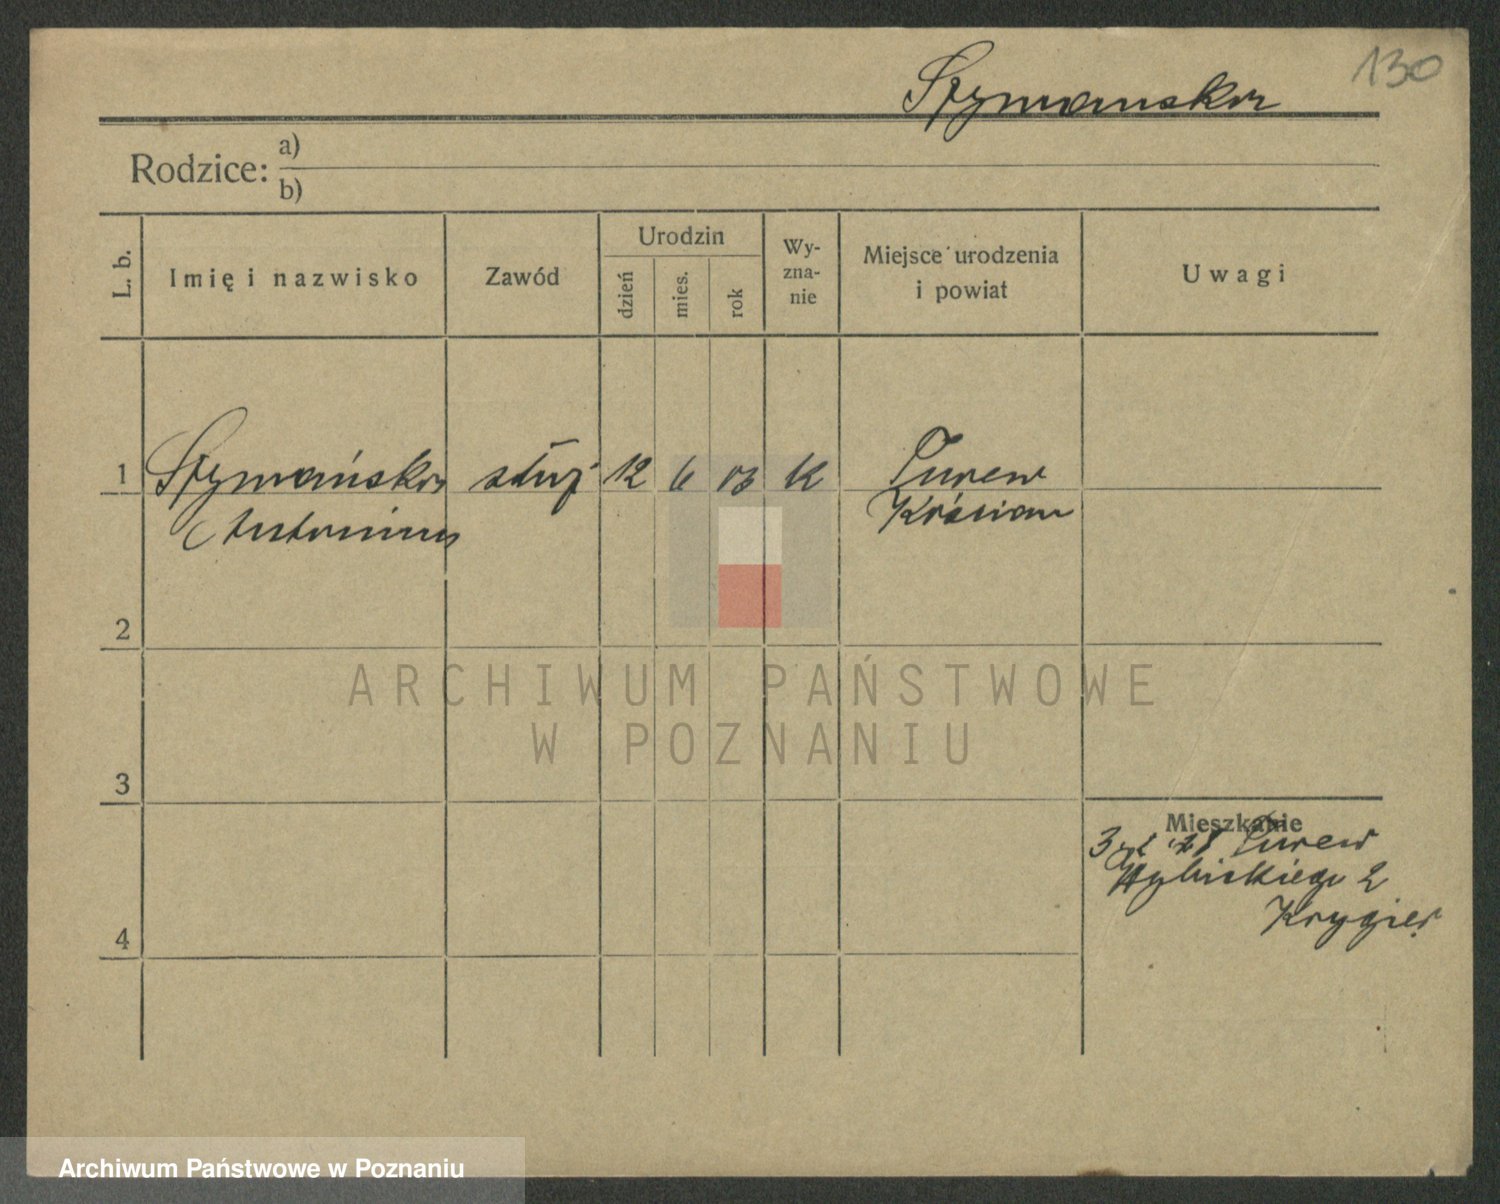 130
Szymańska
Rodzice: a)
b)
L. b.
Imię i nazwisko
Zawód
Urodzin
dzień
mies.
rok
Wy-
zna-
nie
Miejsce urodzenia
i powiat
Uwagi
1
Szymańska
służ
12
6
03
k
Turew
Kościan
2
3
4
Mieszkanie
Turew
Wybickiego 2
Krygier
ARCHIWUM PAŃSTWOWE
W POZNANIU
Archiwum Państwowe w Poznaniu